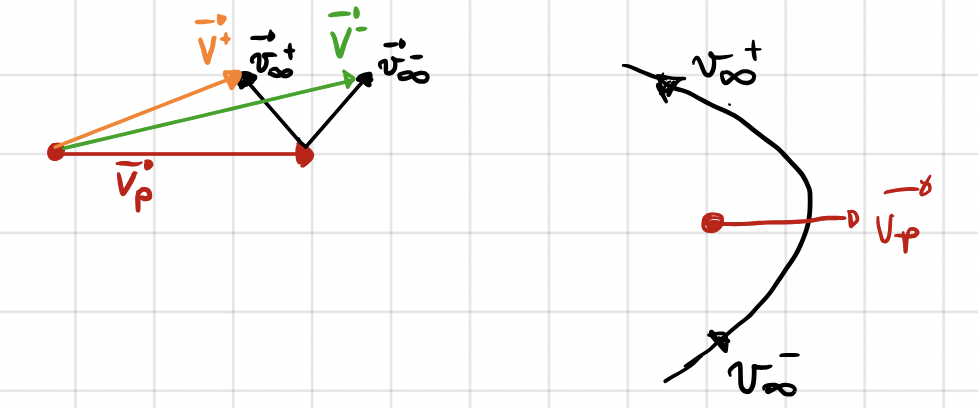 V⃗⁺
v⃗∞⁺
V⃗⁻
v⃗∞⁻
v⃗p
v∞⁺
v⃗p
v∞⁻